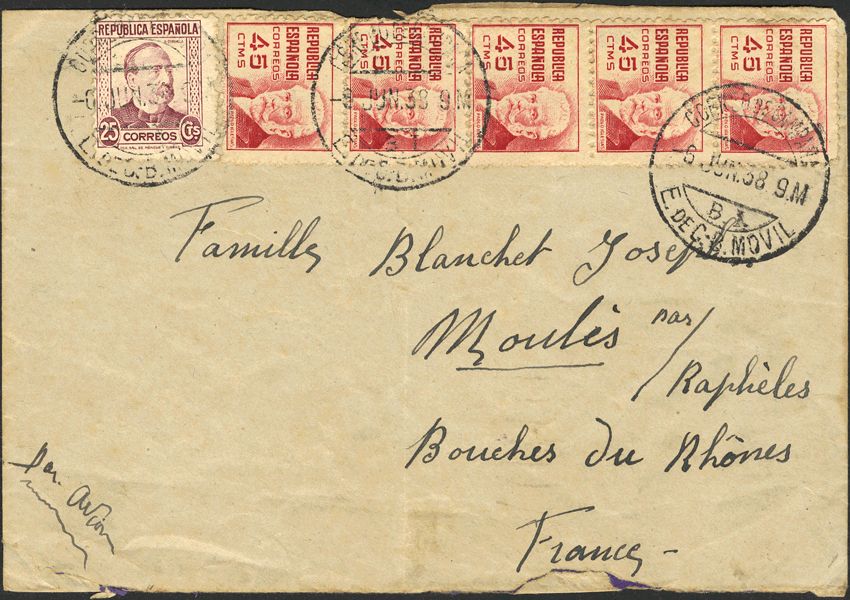 REPÚBLICA ESPAÑOLA
25 Cts
CORREOS
REPÚBLICA
ESPAÑOLA
CORREOS
45
CTMS
REPÚBLICA
ESPAÑOLA
CORREOS
45
CTMS
REPÚBLICA
ESPAÑOLA
CORREOS
45
CTMS
REPÚBLICA
ESPAÑOLA
CORREOS
45
CTMS
REPÚBLICA
ESPAÑOLA
CORREOS
45
CTMS
-6 JUN.38
E. DE C.-B. MOVIL
-6 JUN.38 9.M
E. DE C.-B. MOVIL
-6 JUN.38 9.M
B.X
E. DE C.-B. MOVIL
Famille Blanchet Josep
Moulès par/
Raphèles
Bouches du Rhônes
France -
Par Avion